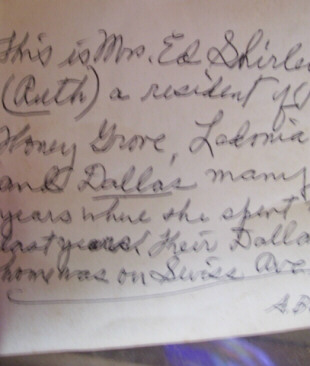 This is Mrs. Ed Shirle
(Ruth) a resident of
Honey Grove, Ladonia
and Dallas many
years where she spent
last years. Their Dalla
home was on Swiss Ave